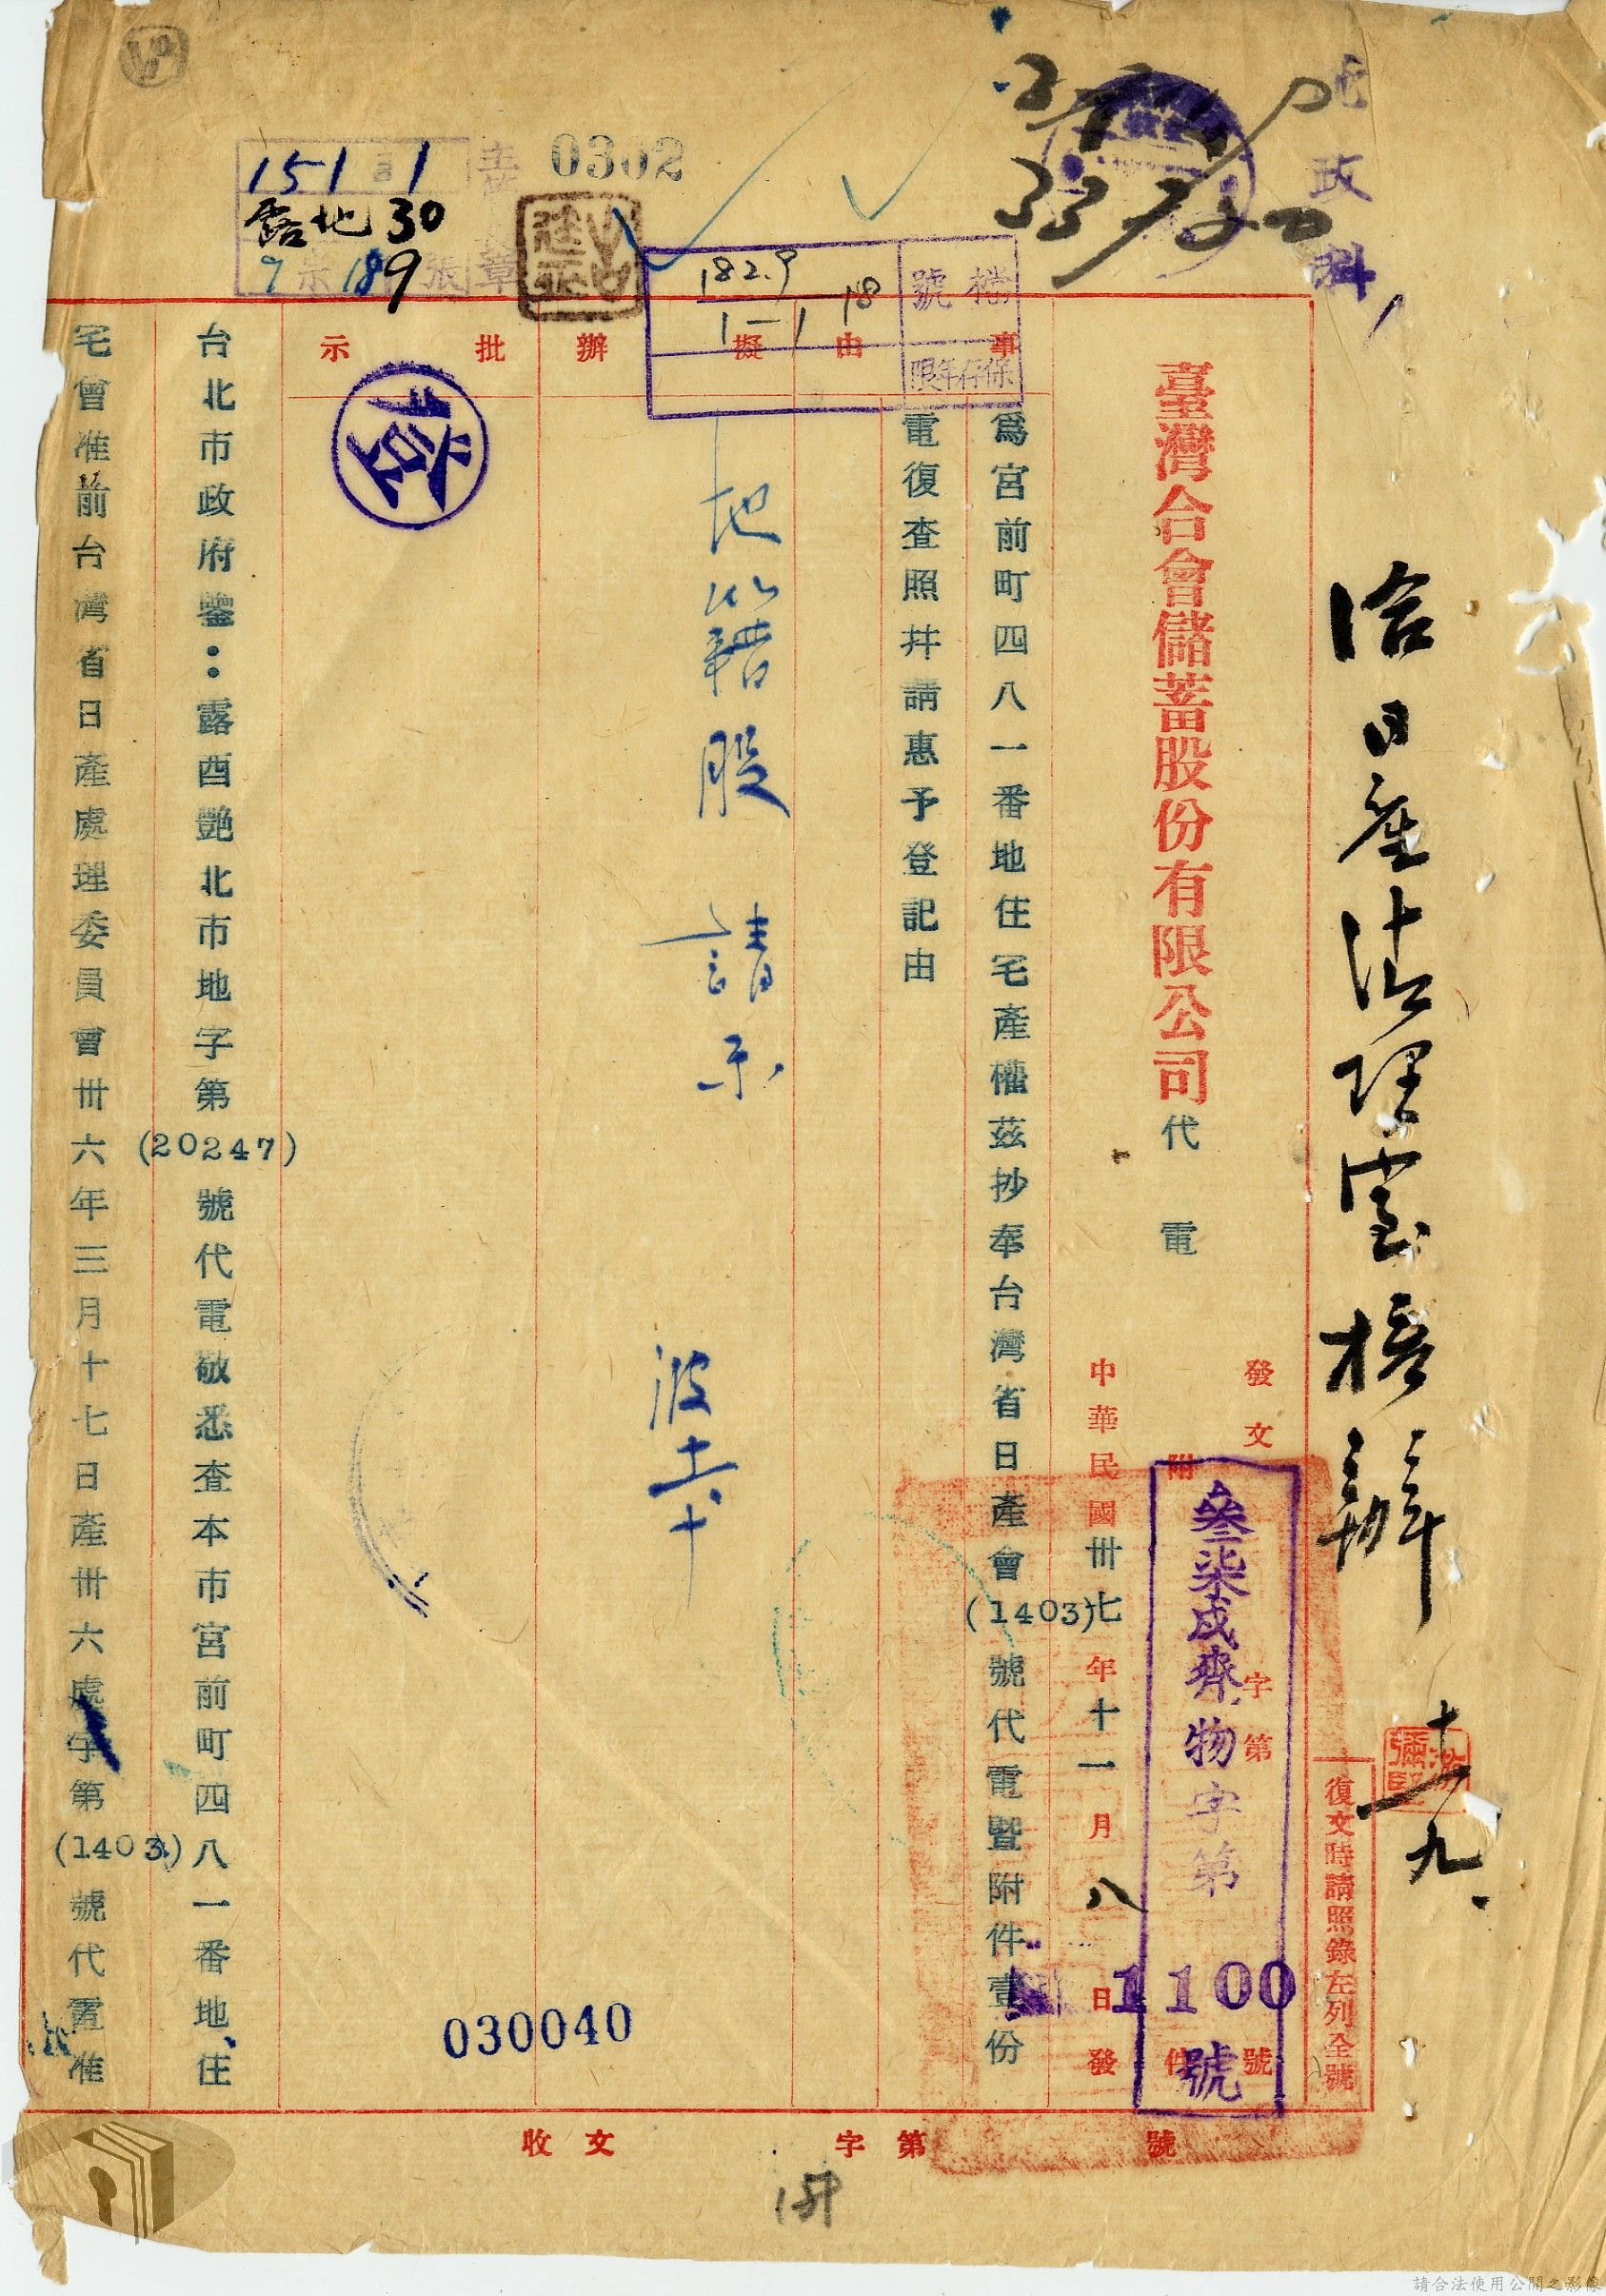 地政科
洽日產清理室核辦
十一九
復文時請照錄左列全號
發文 字第 號
叁柒戌齊物字第1100號
附 件
臺灣合會儲蓄股份有限公司 代電
中華民國卅七年十一月八日發
事由
為宮前町四八一番地住宅產權茲抄奉台灣省日產會(1403)號代電暨附件壹份
電復查照并請惠予登記由
檔號
182.9
1-1
18
保存年限
擬辦
地籍股 請示
批示
登
主
章
0302
151
1
露地 30
9 宗 189 張
台北市政府鑒：露酉艷北市地字第(20247)號代電敬悉查本市宮前町四八一番地住
宅會准前台灣省日產處理委員會卅六年三月十七日產卅六處字第(1403)號代電准
030040
收文 字第 號
請合法使用公開之影像